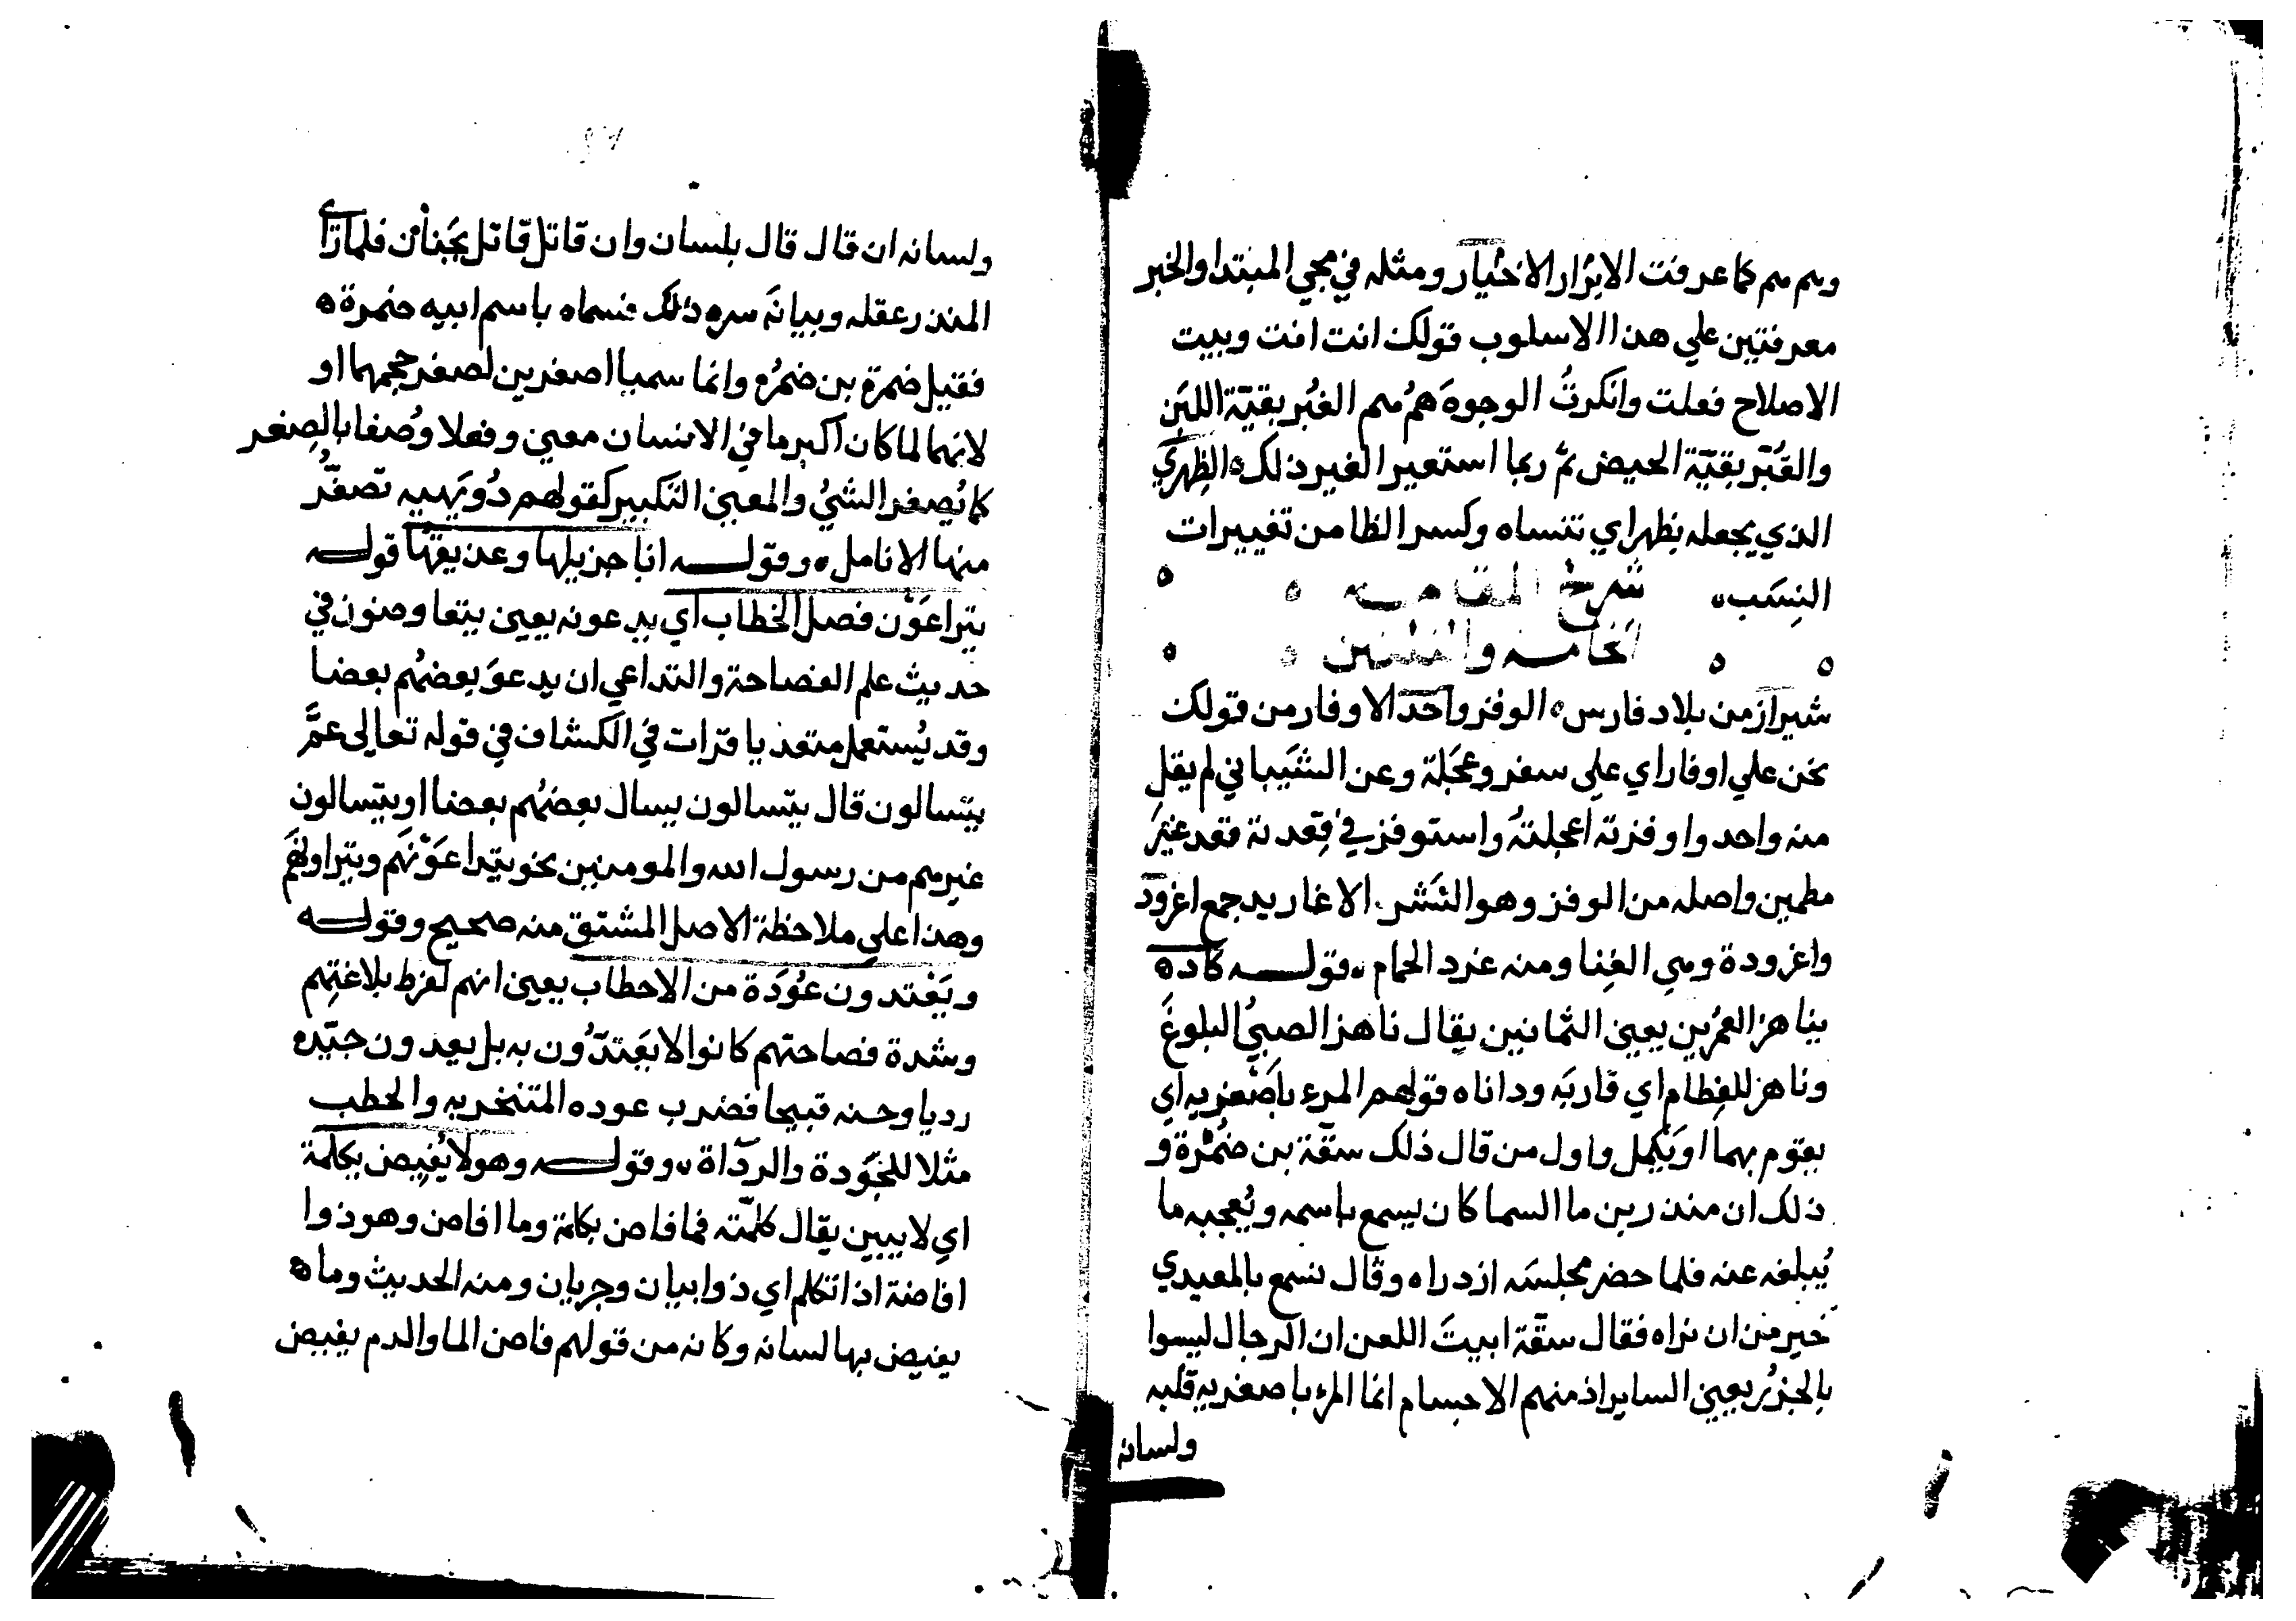 وهم هم كما عرفت الابرار الاخيار ومثله في مجي المبتدا والخبر
معرفتين علي هذا الاسلوب قولك انت انت وبيت
الاصلاح فعلت وانكرتُ الوجوهَ همُ هم الغُبّر بقيّة اللبَن
والغُبّر بقيّة الحيض ثم ربما استعير الغير ذلك ه الظِهري
الذي يجعله بظهر اي تنساه وكسر الظا من تغييرات
النِسَب ه شرح المقامه
الخامسه والثلثين
شيراز من بلاد فارس ه الوفز واحد الاوفاز من قولك
نحن علي اوفاز اي علي سفر وعَجَلة وعن الشَيباني لم يقل
منه واحد واوفزته اعجلتهُ واستوفز في قِعدته قعد غيرَ
مطمين واصله من الوفز وهو النَشز الاغاريد جمع اغرود
واغرودة وهي الغِنا ومنه غرد الحمام ه قوله كاد ه
يناهز العمُرين يعني الثمانين يقال ناهز الصبيُ البلوغَ
وناهز للفِطام اي قاربَه وداناه قولهم المرء باَصْغريه اي
يقوم بهما او يَكمل واول من قال ذلك سقّة بن ضَمْرة و
ذلك ان منذر بن ما السما كان يسمع باسمه ويُعجبه ما
يُبلغه عنه فلما حضر مجلسَه ازدراه وقال تسمع بالمعيدي
خير من ان تراه فقال سقّة ابيتَ اللعن ان الرجال ليسوا
بالجزُر يعني السا يراذ منهم الاجسام انما المرء باصغريه قلبه
ولسانه
ولسانه ان قال قال بلسان وان قاتل قاتل بجَنان فلما رَاَى
المنذر عقله وبيانَه سره ذلك فسماه باسم ابيه ضمرة ه
فقيل ضمرة بن ضمُره وانما سميا اصغرين لصغر حجمهما او
لانهما لما كان اكبر ما في الانسان معني وفعلا وُصفا بالصِغر
كما يُصغر الشيُ والمعني التكبير كقولهم دُوَيهيه تصفّر
منها الانامل ه وقوله انا جزيلها وعذيقُها قوله
يتراعَوْن فصل الخطاب اي يدعونه يعني يتفاوضون في
حديث علم الفصاحة والتداعي ان يدعوَ بعضهُم بعضا
وقد يُستعمل متعديا قرات في الكشاف في قوله تعالى عمَّ
يتسالون قال يتسالون يسال بعضهُم بعضا او يتسالون
غيرهم من رسول الله والمومنين نحو يتداعَوْنَهم ويتراونَهم
وهذا علي ملاحظة الاصل المشتق منه صحيح وقوله
ويَعْتدون عوُدَه من الاحطاب يعني انهم لفرط بلاغتِهم
وشدة فصاحتهم كانوا لا يعَتدّون به بل يعدون جيّده
رديا وحسنه قبيحا فضرب عوده المتنخر به والحطب
مثلا للجَودة والردّاة ه وقوله وهو لا يُفيض بكلمة
اي لا يبين يقال كلمّته فما افاص بكلمة وما افاص وهو ذوا
افاضة اذا تكلم اي ذوا بيان وجريان ومنه الحديث وما ه
يفيض بها لسانه وكانه من قولهم فاض الما والدم يفيض